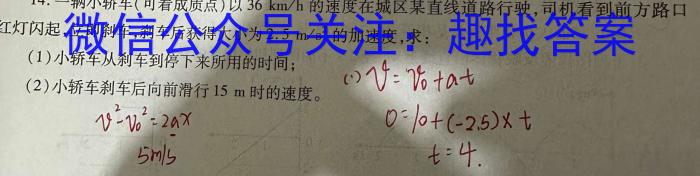 14. 一辆小轿车(可看成质点)以 36 km/h 的速度在城区某直线道路行驶,司机看到前方路口
红灯闪起,立即刹车,刹车后获得大小为 2.5 m/s² 的加速度,求:
微信公众号关注:趣找答案
(1)小轿车从刹车到停下来所用的时间;
(2)小轿车刹车后向前滑行 15 m 时的速度。
(1) v = v₀ + at
0 = 10 + (-2.5) × t
t = 4.
v² - v₀² = 2ax
5m/s